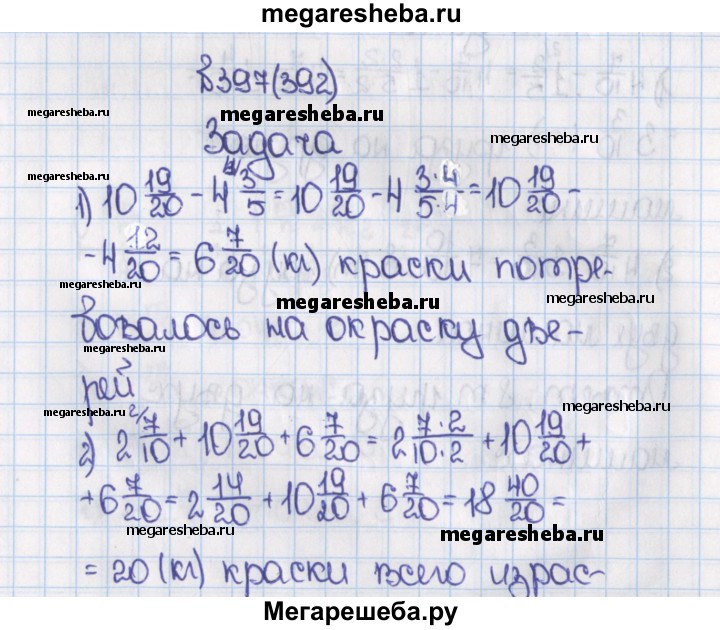 megaresheba.ru
в 397(392)
megaresheba.ru megaresheba.ru megaresheba.ru
Задача
megaresheba.ru
1) 10 19/20 - 4 3/5 = 10 19/20 - 4 3·4/5·4 = 10 19/20 -
- 4 12/20 = 6 7/20 (кг) краски потре-
megaresheba.ru megaresheba.ru megaresheba.ru
бовалось на окраску две-
megaresheba.ru
рей
megaresheba.ru megaresheba.ru
2) 2 7/10 + 10 19/20 + 6 7/20 = 2 7·2/10·2 + 10 19/20 +
+ 6 7/20 = 2 14/20 + 10 19/20 + 6 7/20 = 18 40/20 =
megaresheba.ru megaresheba.ru
= 20 (кг) краски всего израс-
Мегарешеба.ру